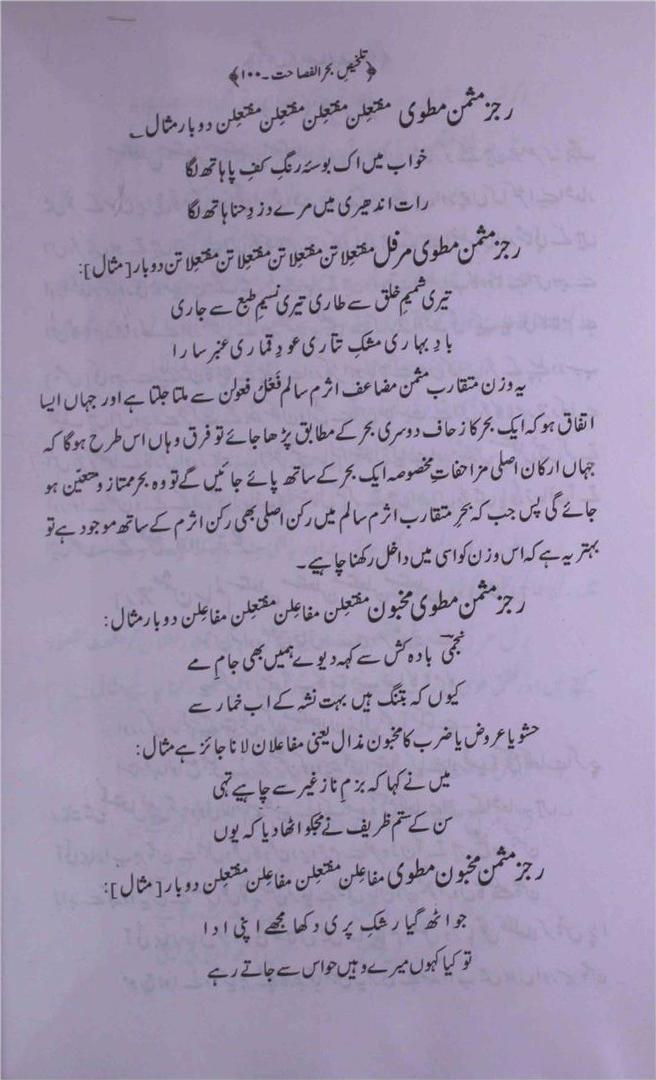 ﴿تلخیصِ بحر الفصاحت۔۱۰۰﴾
رجز مثمن مطوی مفتعِلن مفتعِلن مفتعِلن مفتعِلن دوبار مثال ؎
خواب میں اک بوسۂ رنگِ کفِ پا ہاتھ لگا
رات اندھیری میں مرے دزدِ حنا ہاتھ لگا
رجز مثمن مطوی مرفل مفتعِلاتن مفتعِلاتن مفتعِلاتن مفتعِلاتن دوبار [مثال]:
تیری شمیمِ خلق سے طاری تیری نسیمِ طبع سے جاری
بادِ بہاری مشکِ تتاری عودِ قماری عنبر سارا
یہ وزن متقارب مثمن مضاعف اثرم سالم فَعْلُ فعولن سے ملتا جلتا ہے اور جہاں ایسا
اتفاق ہو کہ ایک بحر کا زحاف دوسری بحر کے مطابق پڑھا جائے تو فرق وہاں اس طرح ہوگا کہ
جہاں ارکان اصلی مزاحفاتِ مخصوصہ ایک بحر کے ساتھ پائے جائیں گے تو وہ بحر ممتاز و متعیّن ہو
جائے گی پس جب کہ بحرِ متقارب اثرم سالم میں رکن اصلی بھی رکن اثرم کے ساتھ موجود ہے تو
بہتر یہ ہے کہ اس وزن کو اسی میں داخل رکھنا چاہیے۔
رجز مثمن مطوی مخبون مفتعِلن مفاعِلن مفتعِلن مفاعِلن دوبار مثال:
نجمیؔ بادہ کش سے کہہ دیوے ہمیں بھی جامِ مے
کیوں کہ بتنگ ہیں بہت نشہ کے اب خمار سے
حشو یا عروض یا ضرب کا مخبون مذال یعنی مفاعلان لانا جائز ہے مثال:
میں نے کہا کہ بزمِ ناز غیر سے چاہیے تہی
سن کے ستم ظریف نے مجکو اٹھا دیا کہ یوں
رجز مثمن مخبون مطوی مفاعِلن مفتعِلن مفاعِلن مفتعِلن دوبار [مثال]:
جو اٹھ گیا رشکِ پری دکھا مجھے اپنی ادا
تو کیا کہوں میرے وہیں حواس سے جاتے رہے